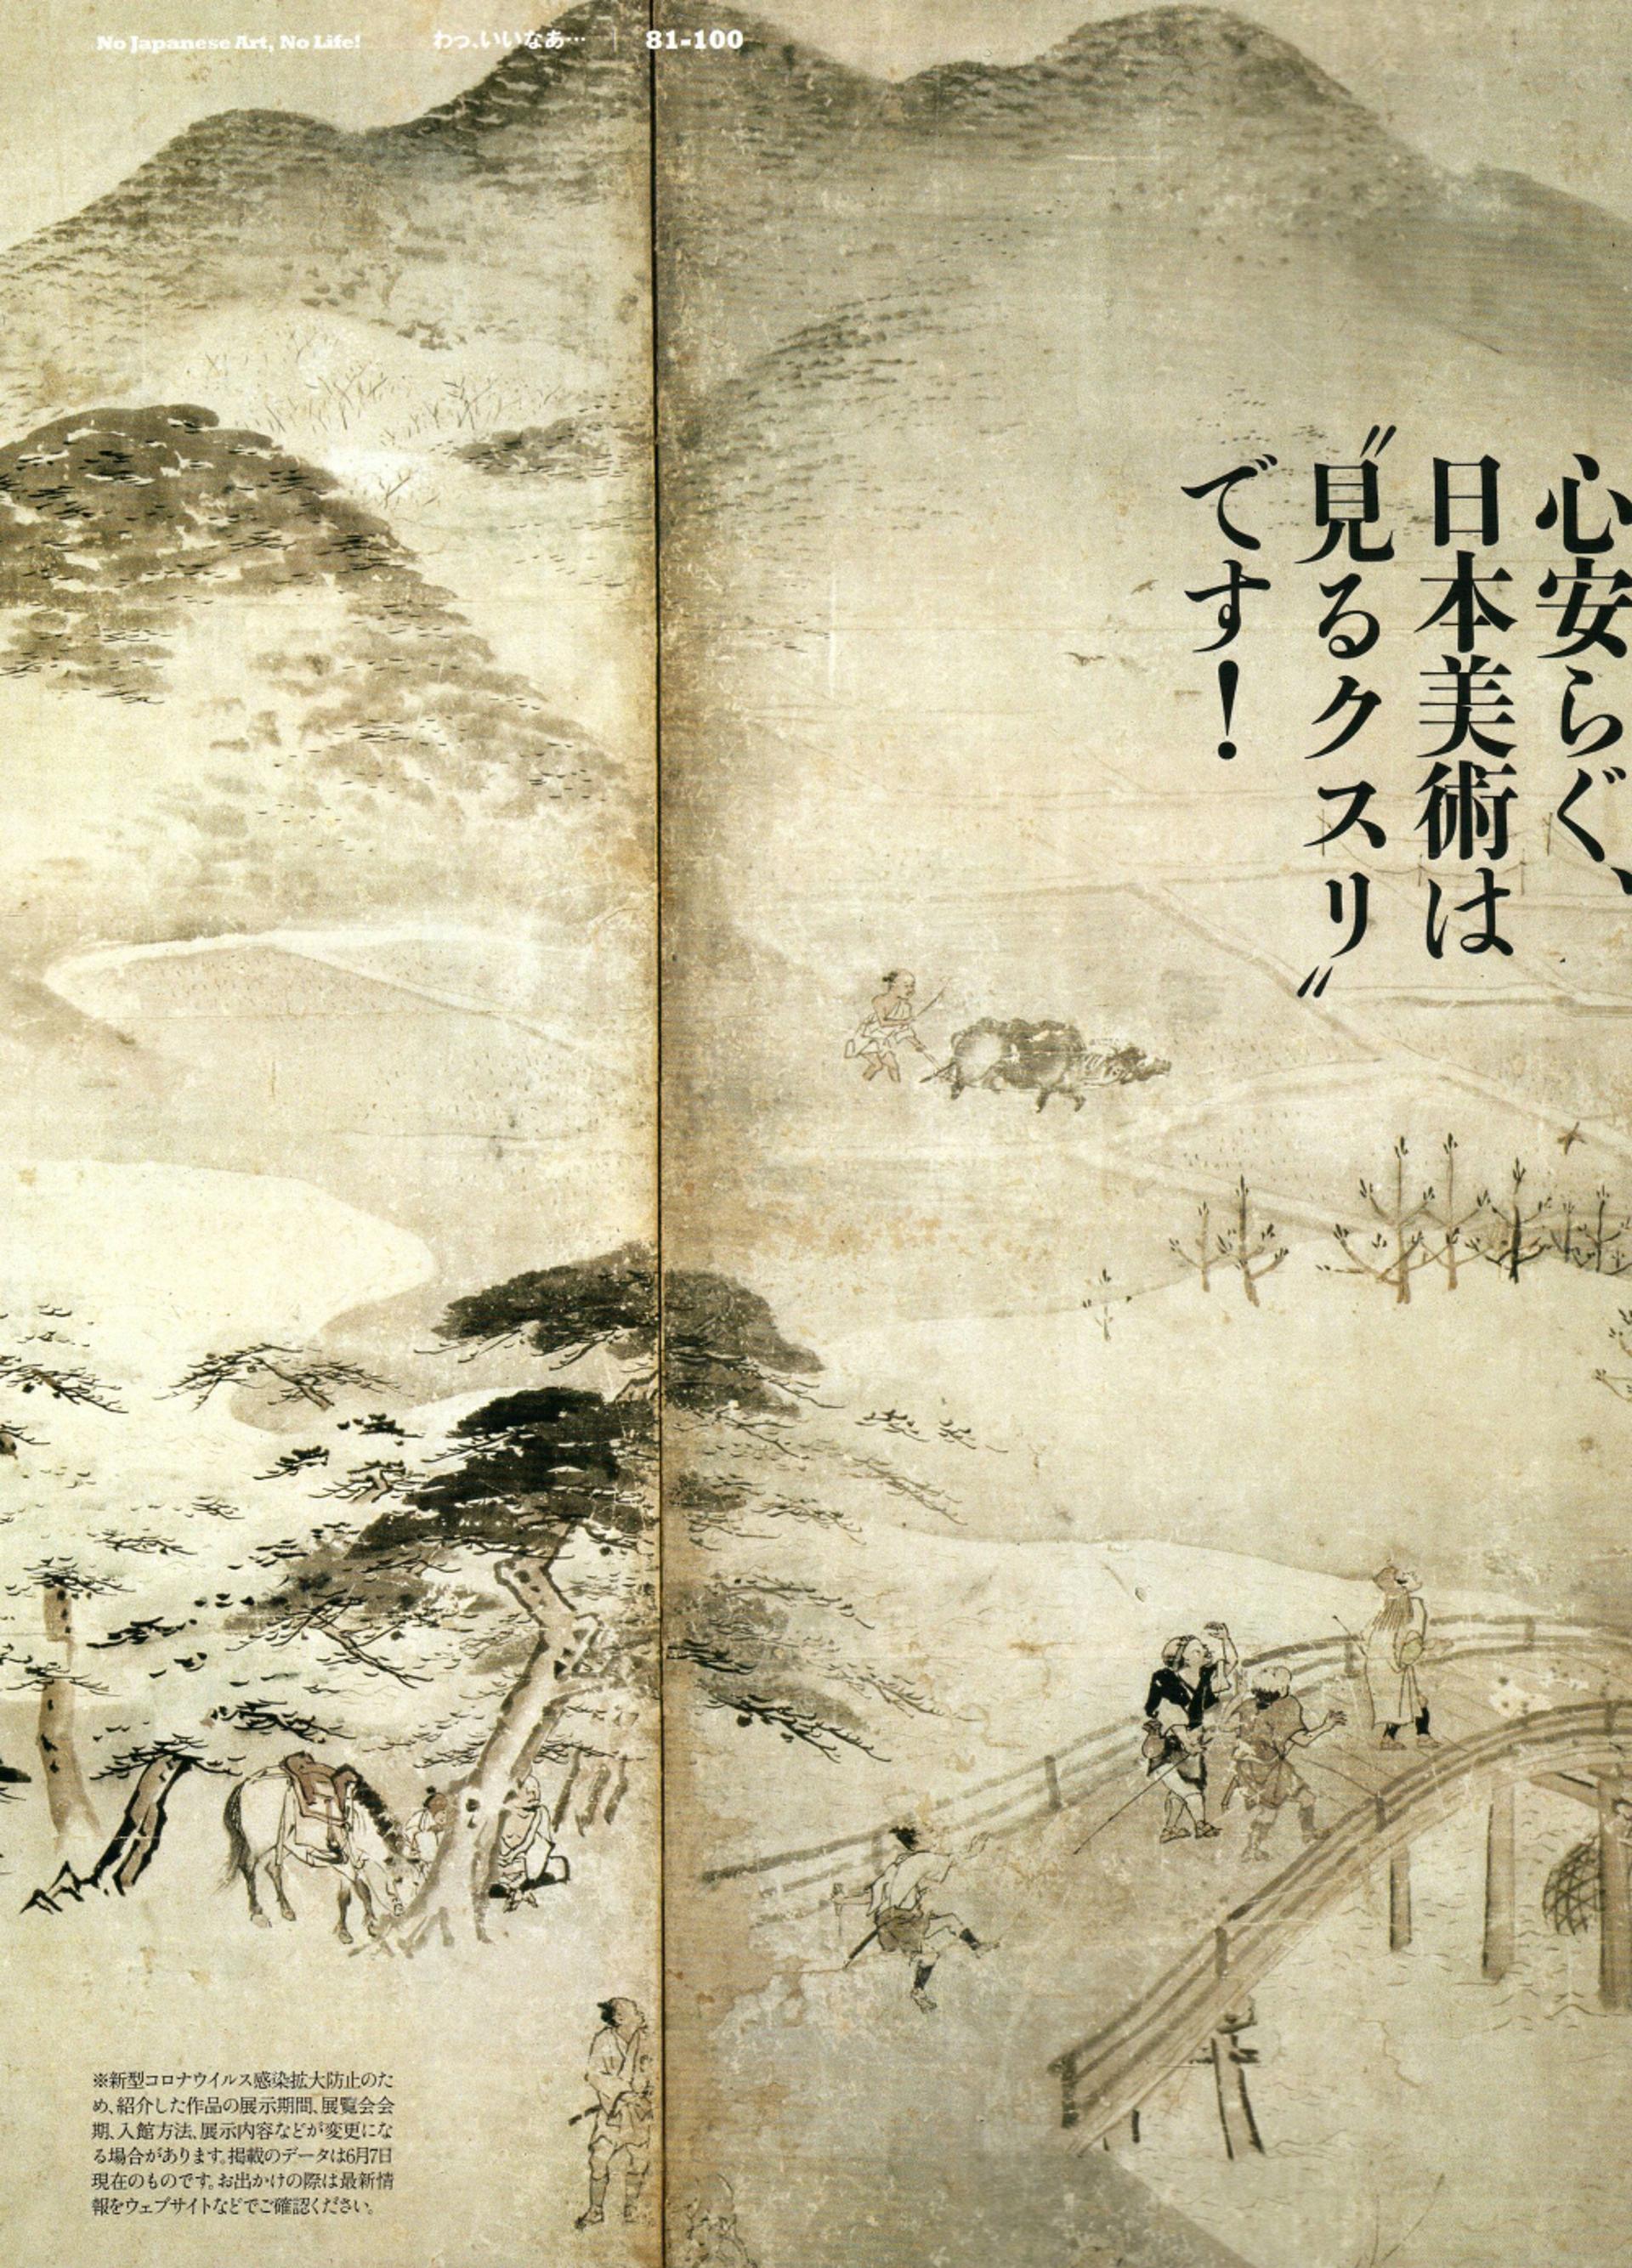 No Japanese Art, No Life!
わっ、いいなあ…
81-100
心安らぐ、
日本美術は
〝見るクスリ〟
です！
※新型コロナウイルス感染拡大防止のた
め、紹介した作品の展示期間、展覧会会
期、入館方法、展示内容などが変更にな
る場合があります。掲載のデータは6月7日
現在のものです。お出かけの際は最新情
報をウェブサイトなどでご確認ください。